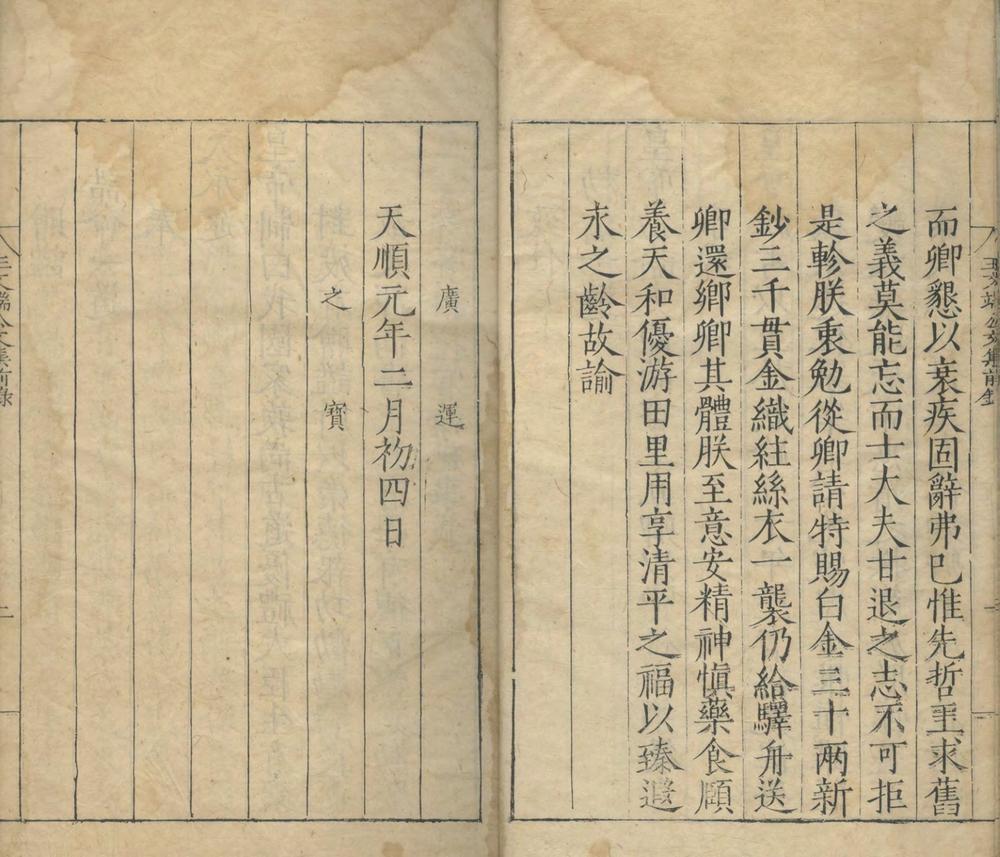 而卿懇以衰疾固辭弗已惟先哲重求舊
之義莫能忘而士大夫甘退之志不可拒
是軫朕衷勉從卿請特賜白金三十兩新
鈔三千貫金織紵絲衣一襲仍給驛舟送
卿還鄉卿其體朕至意安精神慎藥食頤
養天和優游田里用享清平之福以臻遐
永之齡故諭
廣運
天順元年二月初四日
之寶
王文端公文集前錄